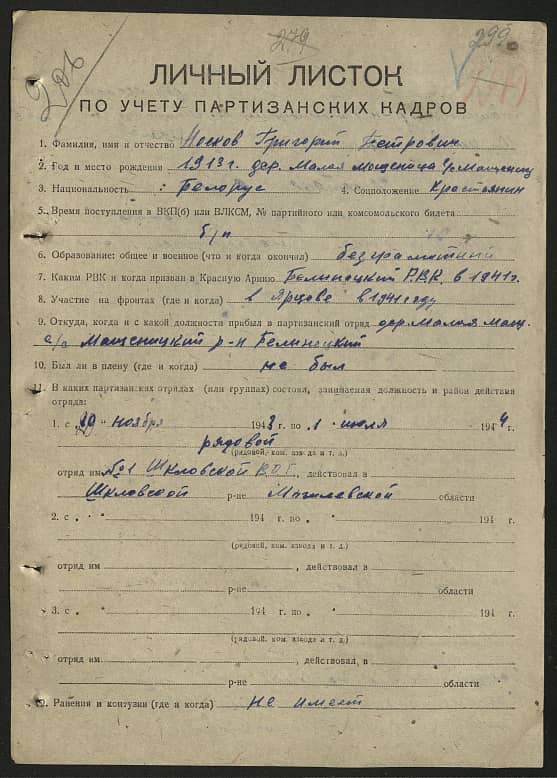 279
299
206
ЛИЧНЫЙ ЛИСТОК
ПО УЧЕТУ ПАРТИЗАНСКИХ КАДРОВ
1. Фамилия, имя и отчество Носков Григорий Петрович
2. Год и место рождения 1913 г. дер. Малая Мощеница
3. Национальность : Белорус 4. Соцположение Крастянин
5. Время поступления в ВКП(б) или ВЛКСМ, № партийного или комсомольского билета
б/п
6. Образование: общее и военное (что и когда окончил) безграмотный
7. Каким РВК и когда призван в Красную Армию Белиноцкий РВК в 1941 г.
8. Участие на фронтах (где и когда) в Ярцеве в 1941 году
9. Откуда, когда и с какой должности прибыл в партизанский отряд дер. Малая Мощ.
с/с Мощеницкий р-н Белиноцкий
10. Был ли в плену (где и когда) не был
11. В каких партизанских отрядах (или группах) состоял, занимаемая должность и район действия
отряда:
1. с 20 " ноября 1943 г. по " 1 " июля 1944 г.
рядовой
(рядовой, ком. взвода и т. д.)
отряд им №1 Шкловской В.О.Г., действовал в
Шкловской р-не Могилевской области
2. с " " 194 г. по " " 194 г.
(рядовой, ком. взвода и т. д.)
отряд им , действовал в
р-не области
3. с " " 194 г. по " " 194 г.
(рядовой, ком. взвода и т. д.)
отряд им. , действовал, в
р-не области
19. Ранения и контузии (где и когда) не имеет